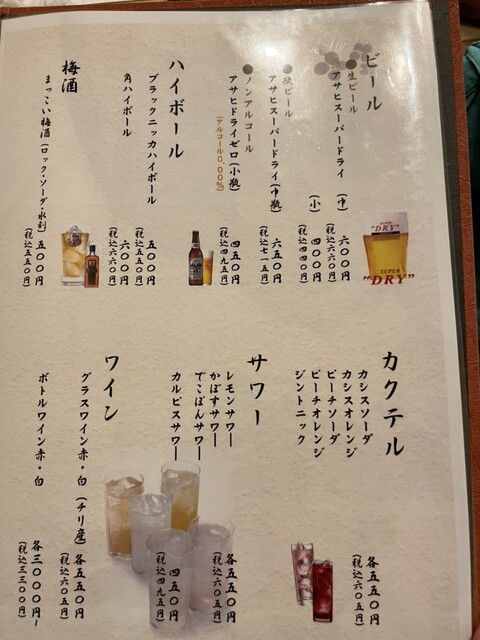 ビール
●生ビール
アサヒスーパードライ (中)
六〇〇円
(税込六六〇円)
(小)
四〇〇円
(税込四四〇円)
●瓶ビール
アサヒスーパードライ(中瓶)
六五〇円
(税込七一五円)
●ノンアルコール
アサヒドライゼロ(小瓶)
(アルコール0.00%)
四五〇円
(税込四九五円)
SUPER
"DRY"
SUPER
"DRY"
ハイボール
ブラックニッカハイボール
五〇〇円
(税込五五〇円)
角ハイボール
六〇〇円
(税込六六〇円)
梅酒
まっこい梅酒(ロック・ソーダ・水割)
五〇〇円
(税込五五〇円)
カクテル
カシスソーダ
カシスオレンジ
ピーチソーダ
ピーチオレンジ
ジントニック
各五五〇円
(税込六〇五円)
サワー
レモンサワー
かぼすサワー
でこぽんサワー
各五五〇円
(税込六〇五円)
カルピスサワー
四五〇円
(税込四九五円)
ワイン
グラスワイン赤・白 (チリ産)
各五五〇円
(税込六〇五円)
ボトルワイン赤・白
各三〇〇〇円~
(税込三三〇〇円)